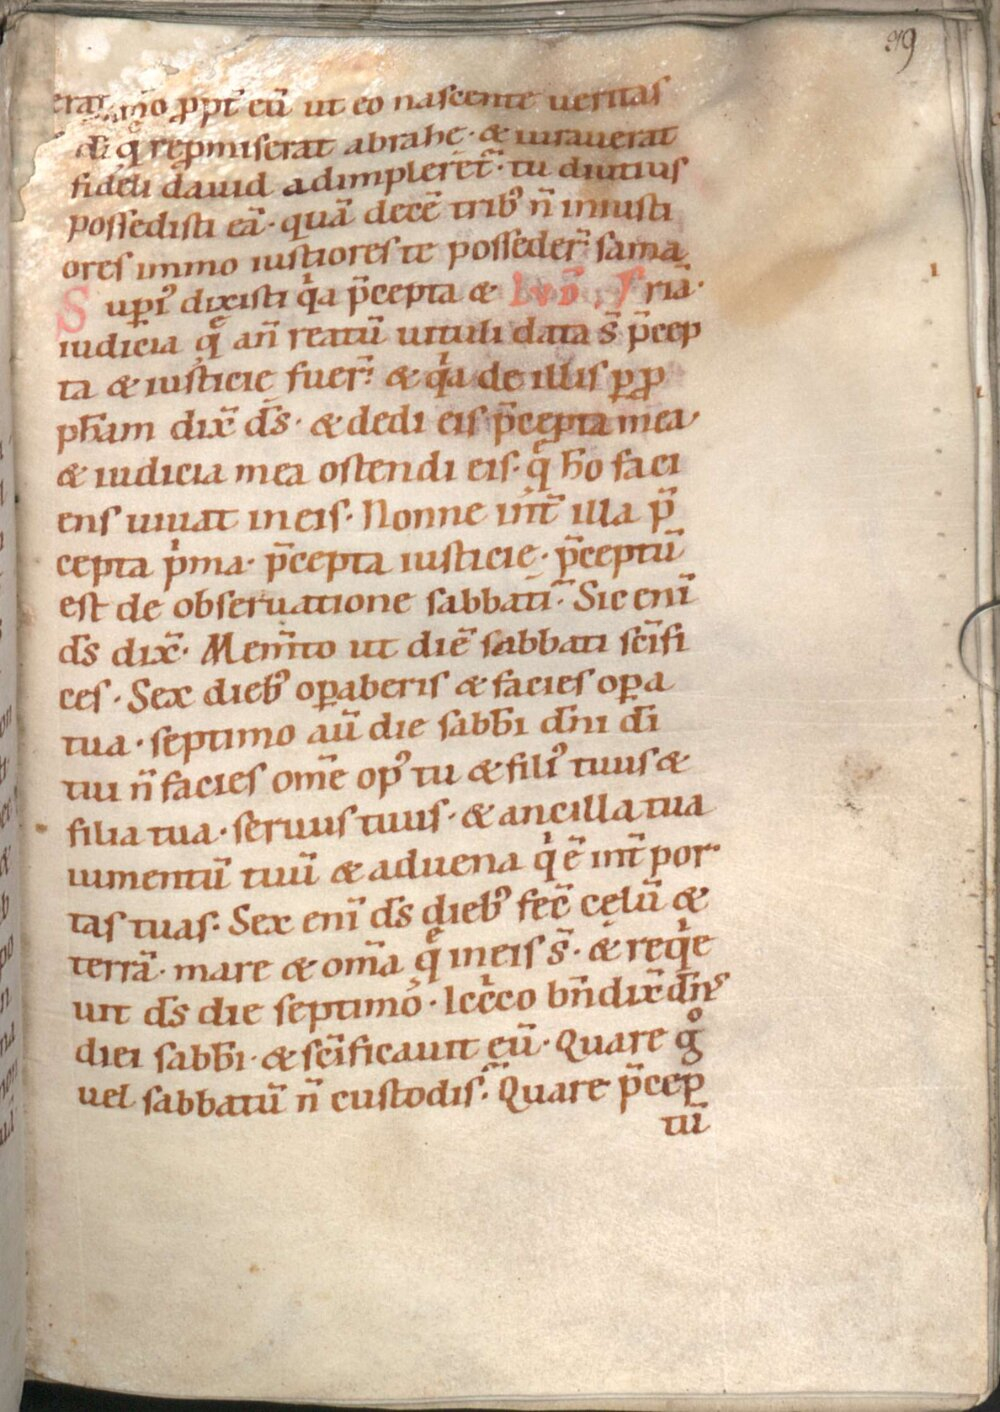 39
erat, immo ꝓpt̄ eū ut eo nascente ueritas
d̄i q̄ repmiserat abrahe · & iurauerat
fideli dauid adimpleret᷑ · tu diutius
possedisti eā · quā decē trib᷒ n̄ iniusti
ores immo iustiores te posseder̄ sama
Sup᷒ dixisti qͥa p̄cepta & IVD̄. S ria ·
iudicia q̨̄ an̄ reatū uituli data s̄ p̄cep
ta & iusticie fuer̄ · & qͥa de illis ꝑ ꝓ
ph̄am dix̄ d̄s · & dedi eis p̄cepta mea ·
& iudicia mea ostendi eis · q̄ h̄o faci
ens uiuat in eis · Nonne int̄ illa p̄
cepta pͥma · p̄cepta iusticie · p̄ceptū
est de obseruatione sabbati · Sic enī
d̄s dix̄ · Mem̄to ut diē sabbati sc̄ifi
ces · Sex dieb᷒ oꝑaberis & facies oꝑa
tua · septimo aū die sabb̄i d̄ni d̄i
tui n̄ facies om̄e op᷒ tu & fili᷒ tuus &
filia tua · seruus tuus · & ancilla tua
iumentū tuū & aduena qͥ ē int̄ por
tas tuas · Sex enī d̄s dieb᷒ fec̄ cęlū &
terrā · mare & om̄a q̨̄ in eis s̄ · & reqͥe
uit d̄s die septimo · Icc̄co bn̄dix̄ d̄n᷒
diei sabb̄i · & sc̄ificauit eū · Quare gͦ
uel sabbatū n̄ custodis · Quare p̄cep
tū